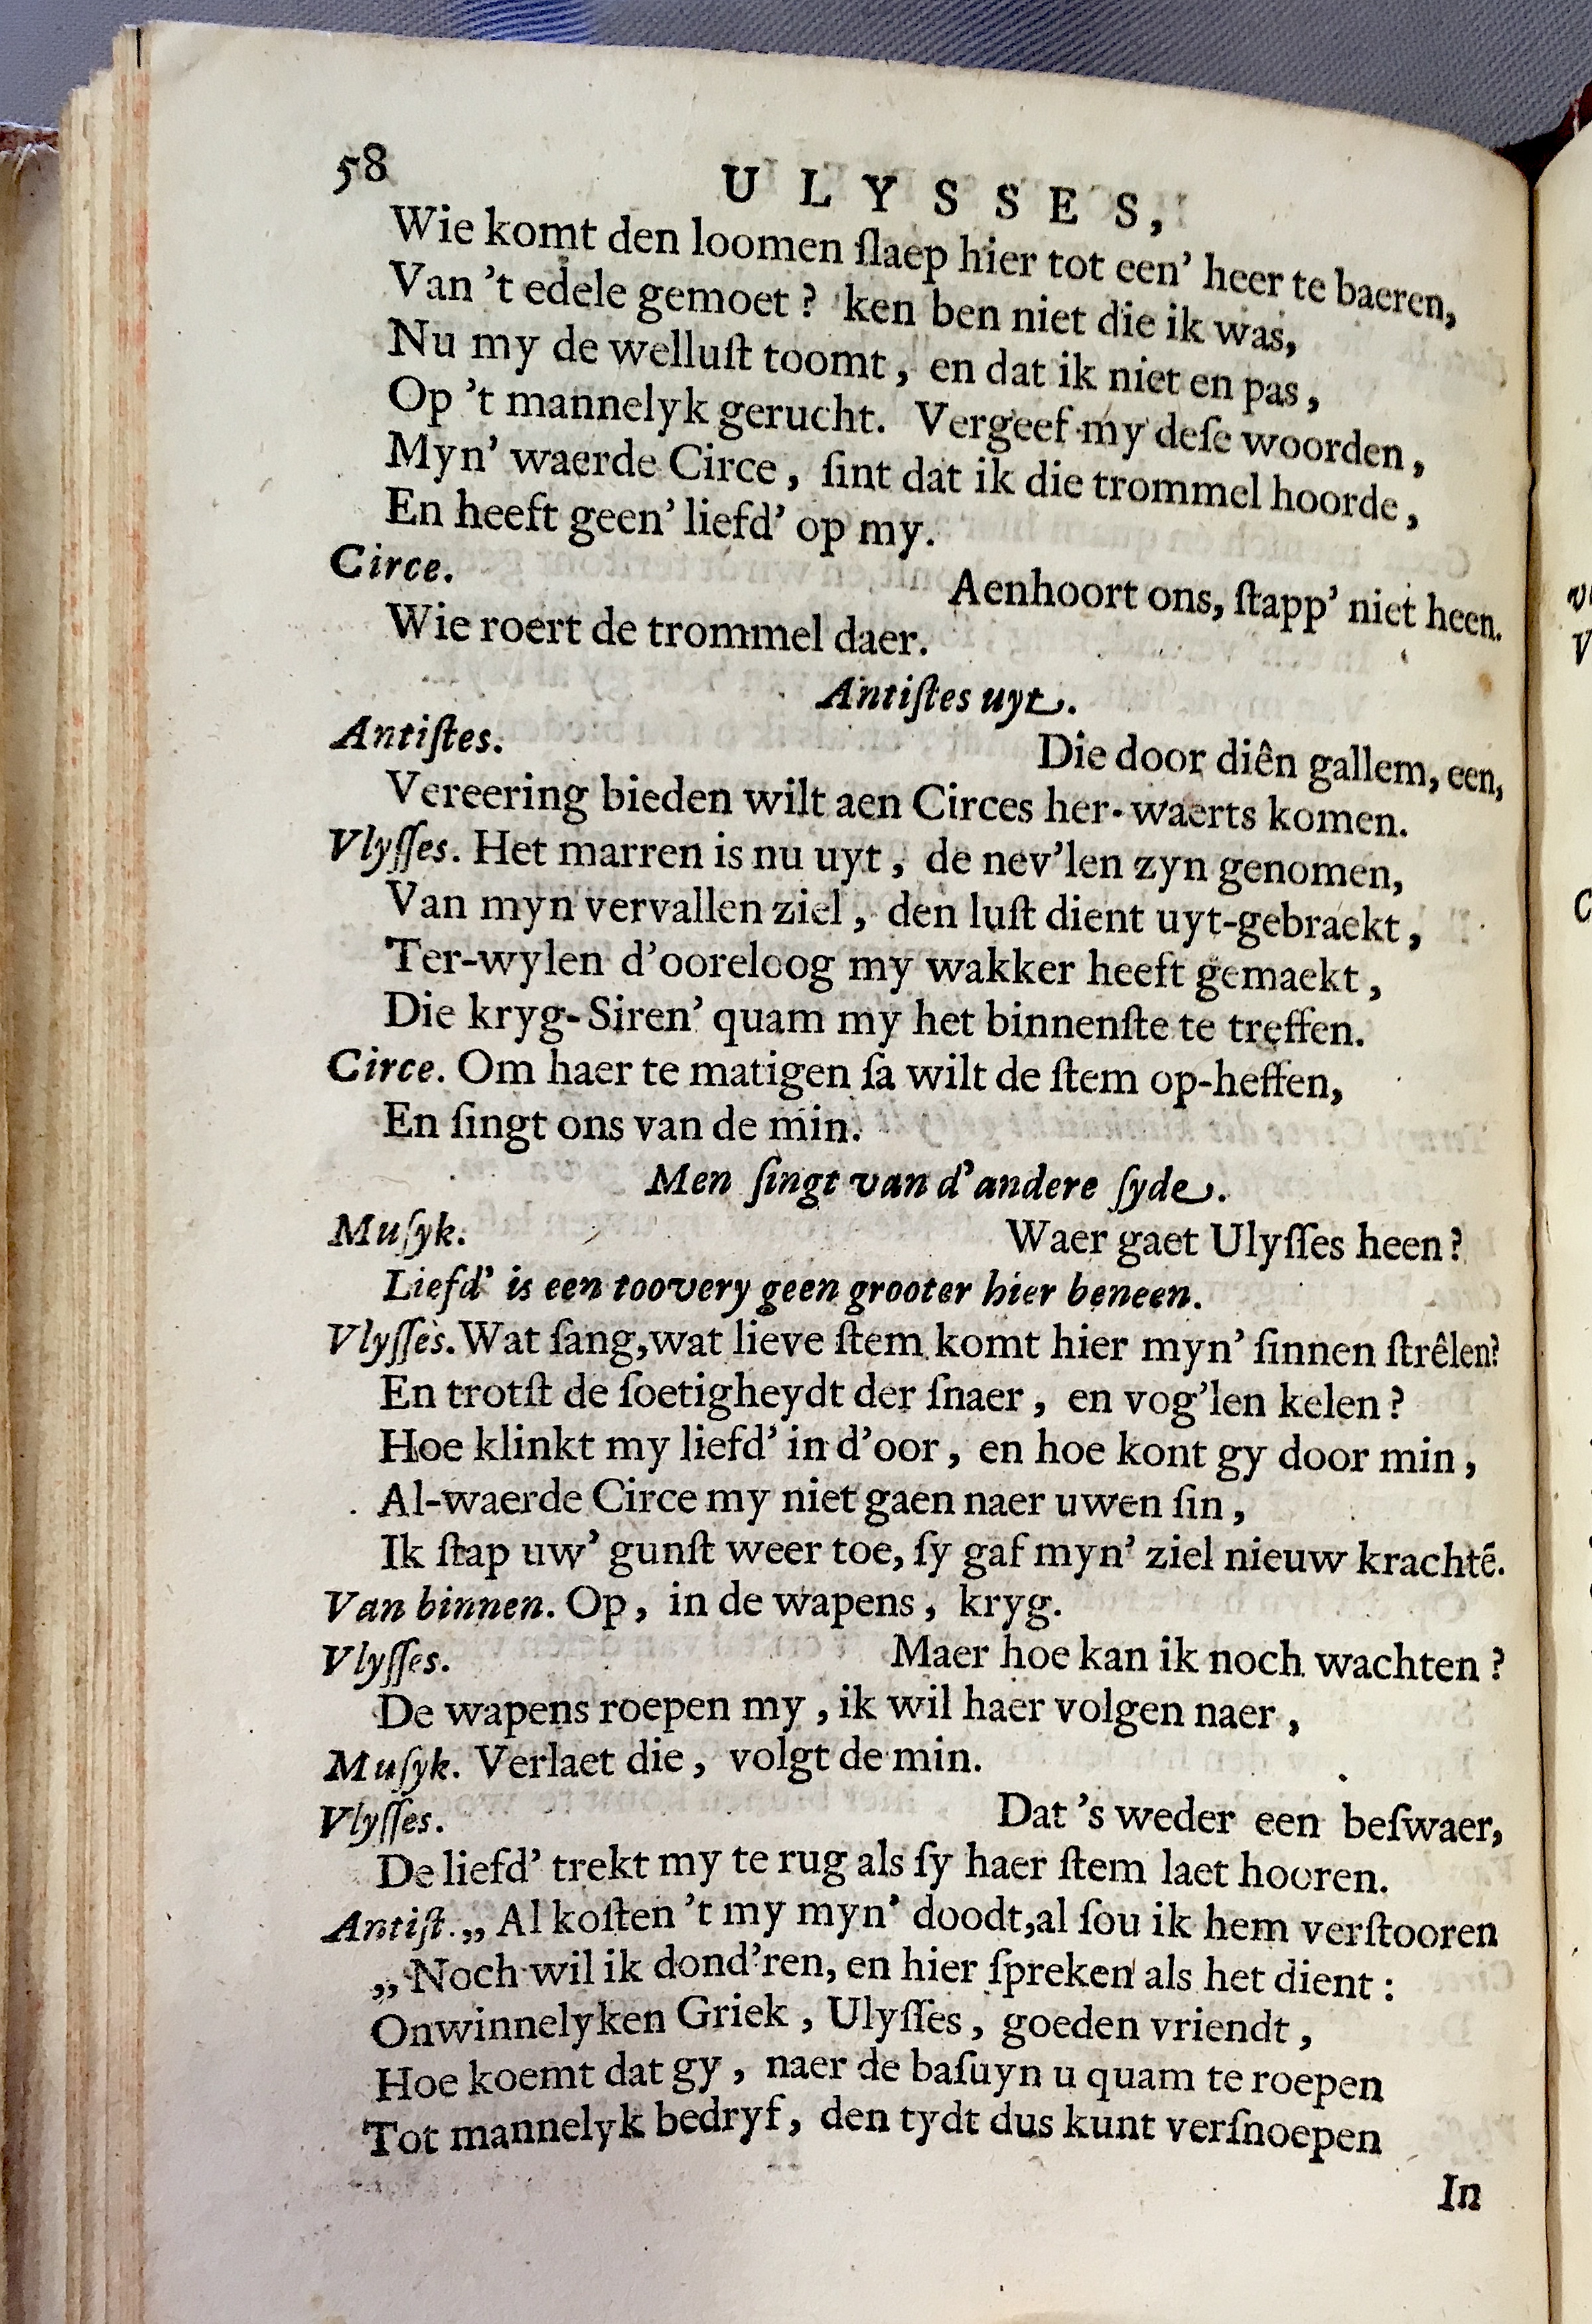 58
ULYSSES,
Wie komt den loomen ſlaep hier tot een' heer te baeren,
Van 't edele gemoet? 'ken ben niet die ik was,
Nu my de welluſt toomt, en dat ik niet en pas,
Op 't mannelyk gerucht. Vergeef my deſe woorden,
Myn' waerde Circe, ſint dat ik die trommel hoorde,
En heeft geen' liefd' op my.
Circe. Aenhoort ons, ſtapp' niet heen.
Wie roert de trommel daer.
Antiſtes uyt.
Antiſtes. Die door diên gallem, een,
Vereering bieden wilt aen Circes her-waerts komen.
Vlyſſes. Het marren is nu uyt, de nev'len zyn genomen,
Van myn vervallen ziel, den luſt dient uyt-gebraekt,
Ter-wylen d'ooreloog my wakker heeft gemaekt,
Die kryg-Siren' quam my het binnenſte te treffen.
Circe. Om haer te matigen ſa wilt de ſtem op-heffen,
En ſingt ons van de min.
Men ſingt van d'andere ſyde.
Muſyk. Waer gaet Ulyſſes heen?
Liefd' is een toovery geen grooter hier beneen.
Vlyſſes. Wat ſang, wat lieve ſtem komt hier myn' ſinnen ſtrêlen?
En trotſt de ſoetigheydt der ſnaer, en vog'len kelen?
Hoe klinkt my liefd' in d'oor, en hoe kont gy door min,
Al-waerde Circe my niet gaen naer uwen ſin,
Ik ſtap uw' gunſt weer toe, ſy gaf myn' ziel nieuw krachtē.
Van binnen. Op, in de wapens, kryg.
Vlyſſes. Maer hoe kan ik noch wachten?
De wapens roepen my, ik wil haer volgen naer,
Muſyk. Verlaet die, volgt de min.
Vlyſſes. Dat 's weder een beſwaer,
De liefd' trekt my te rug als ſy haer ſtem laet hooren.
Antiſt. „ Al koſten 't my myn' doodt, al ſou ik hem verſtooren
„ Noch wil ik dond'ren, en hier ſpreken als het dient:
Onwinnelyken Griek, Ulyſſes, goeden vriendt,
Hoe koemt dat gy, naer de baſuyn u quam te roepen
Tot mannelyk bedryf, den tydt dus kunt verſnoepen
In